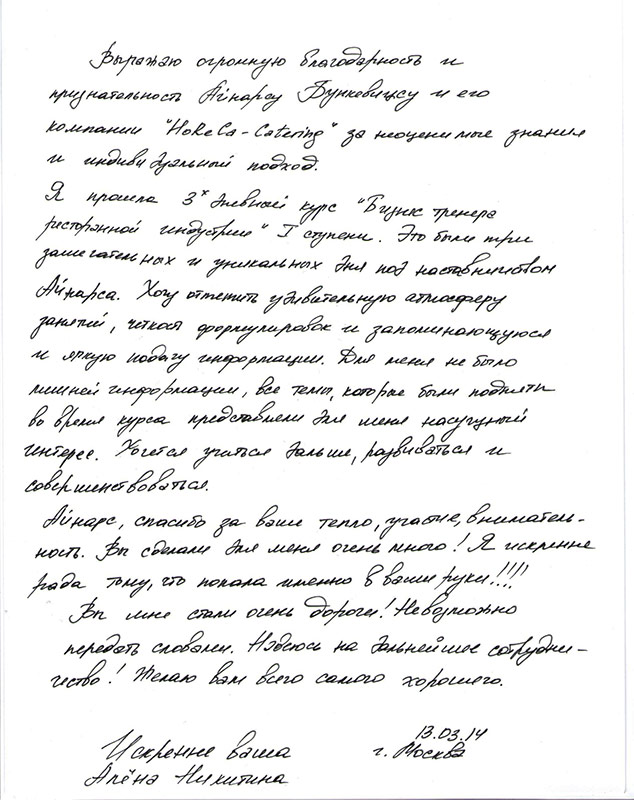 Выражаю огромную благодарность и
признательность Айнарсу Бункевицсу и его
компании "HoReCa-Catering" за неоценимые знания
и индивидуальный подход.
Я прошла 3х дневный курс "Бизнес тренера
ресторанной индустрии" I ступени. Это были три
замечательных и уникальных дня под наставничеством
Айнарса. Хочу отметить удивительную атмосферу
занятий, четкость формулировок и запоминающуюся
и яркую подачу информации. Для меня не было
лишней информации, все темы, которые были подняты
во время курса представляли для меня насущный
интерес. Хочется учиться дальше, развиваться и
совершенствоваться.
Айнарс, спасибо за ваше тепло, участие, вниматель-
ность. Вы сделали для меня очень много! Я искренне
рада тому, что попала именно в ваши руки!!!!
Вы мне стали очень дороги! Невозможно
передать словами. Надеюсь на дальнейшее сотрудни-
чество! Желаю вам всего самого хорошего.
13.03.14
Искренне ваша г. Москва
Алёна Никитина